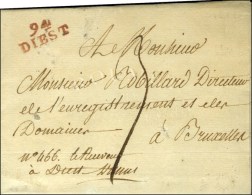 94
DIEST
A Monsieur
Monsieur Robillard Directeur
de l'enregistrement et des
Domaines
à Bruxelles
n° 466. le Receveur
à Diest